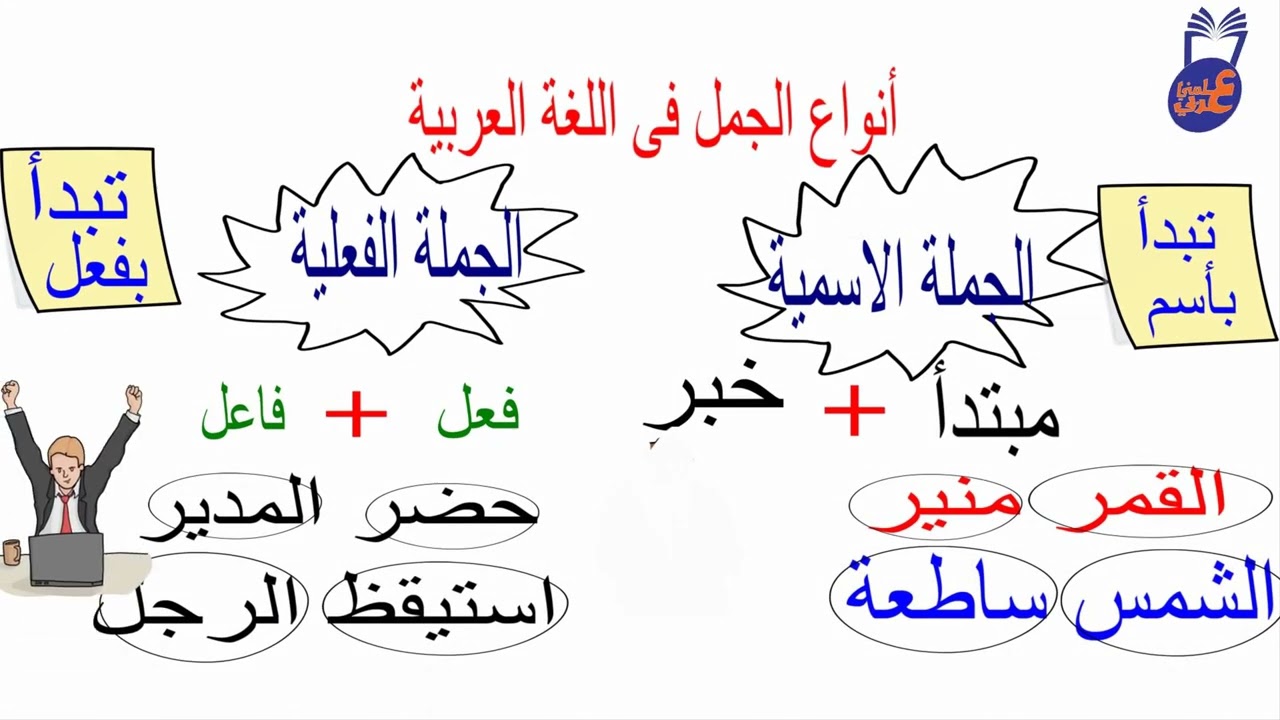 علمني
عربي
أنواع الجمل فى اللغة العربية
تبدأ
بأسم
الجملة الاسمية
مبتدأ + خبر
القمر منير
الشمس ساطعة
الجملة الفعلية
تبدأ
بفعل
فعل + فاعل
حضر المدير
استيقظ الرجل